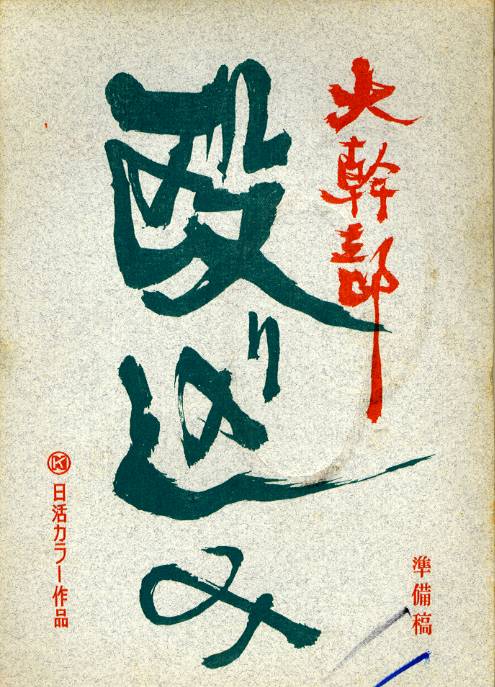 大幹部
殴り込み
準備稿
K
日活カラー作品